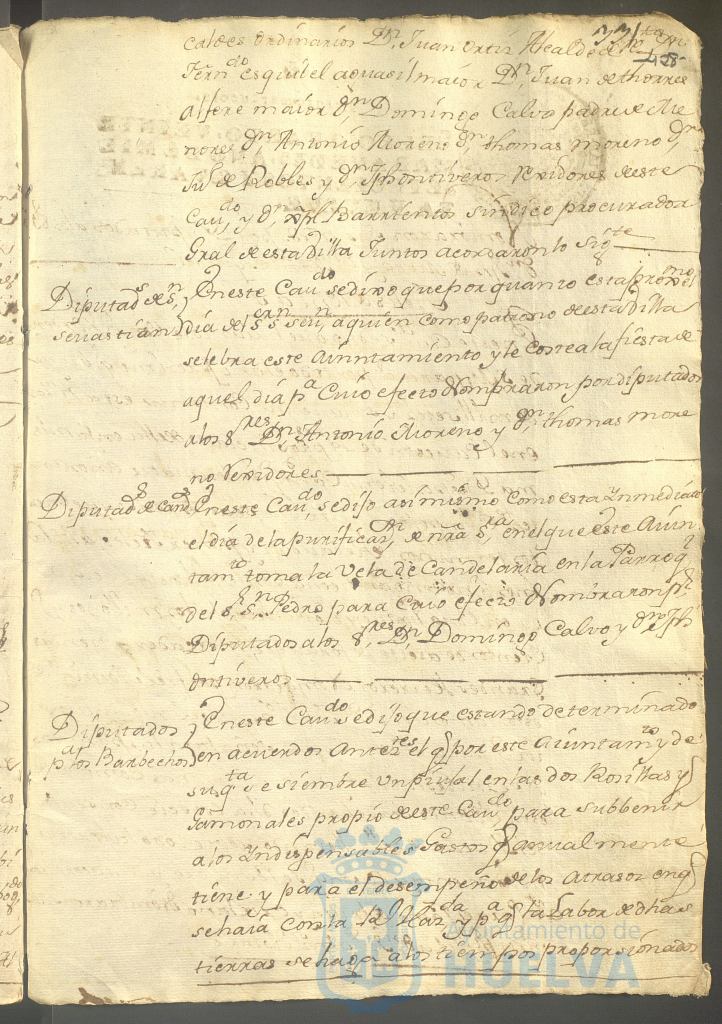 caldes ordinarios Dn, Juan ortiz Alcalde de la
Ferndo esquibel aguasil maior Dn, Juan de thorres
alfere maior dn, Domingo Calvo padre de Me
nores dn, Antonio Moreno dn, thomas moreno dn,
Ju de Robles y dn, Jph ontiveros Rexidores de este
Caudo, y dn, xpl Barrientos sindico procurador
Gral de esta Villa Juntos acordaron lo sigte
Diputads de sn, sevastian
En este Caudo se dixo que por quanto esta proxmo el
dia del sr sn seun, a quien como patrono de esta Villa
selebra este Aiuntamiento y le costea la fiesta de
aquel dia pa Cuio efecto Nombraron por diputados
a los sres, Dn, Antonio Moreno y dn, thomas more
no Rexidores
Diputads de cands
En este Caudo, se dijo asimismo como esta Ynmediato
el dia de la purificasn, de nra sra, en el que este Aiun
tamto toma la Vela de Candelaria en la Parroqa
del sr, sn, Pedro para Cuio efecto Nombraron pr
Diputados a los sres, Dn, Domingo Calvo y dn, Jph
ontiveros
Diputados pa los Barbechos
En este Caudo se dijo que estando determinado
en acuerdos anteres el q por este Aiuntamto y de
su qta se siembre un pinal en las dos Rosillas y
Gamonales propio de este Caudo, para subbenir
a los Yndispensables Gastos q anualmente
tiene y para el desempeño de los atrasos en q
se haia con la Rl Hazda y pa q la Labor de dhas
tierras se haga a los tiempos proporsionados
Ayuntamiento de
HUELVA